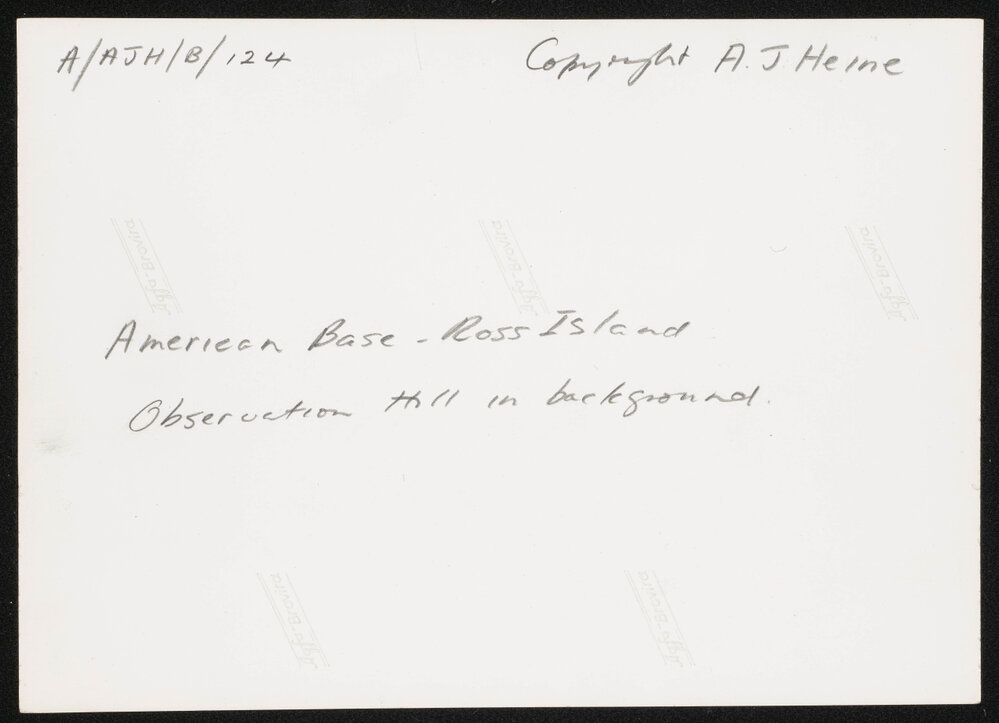 A/AJH/B/124
Copyright A.J Heine
Agfa-Brovira
Agfa-Brovira
Agfa-Brovira
American Base - Ross Island
Observation Hill in background.
Agfa-Brovira
Agfa-Brovira